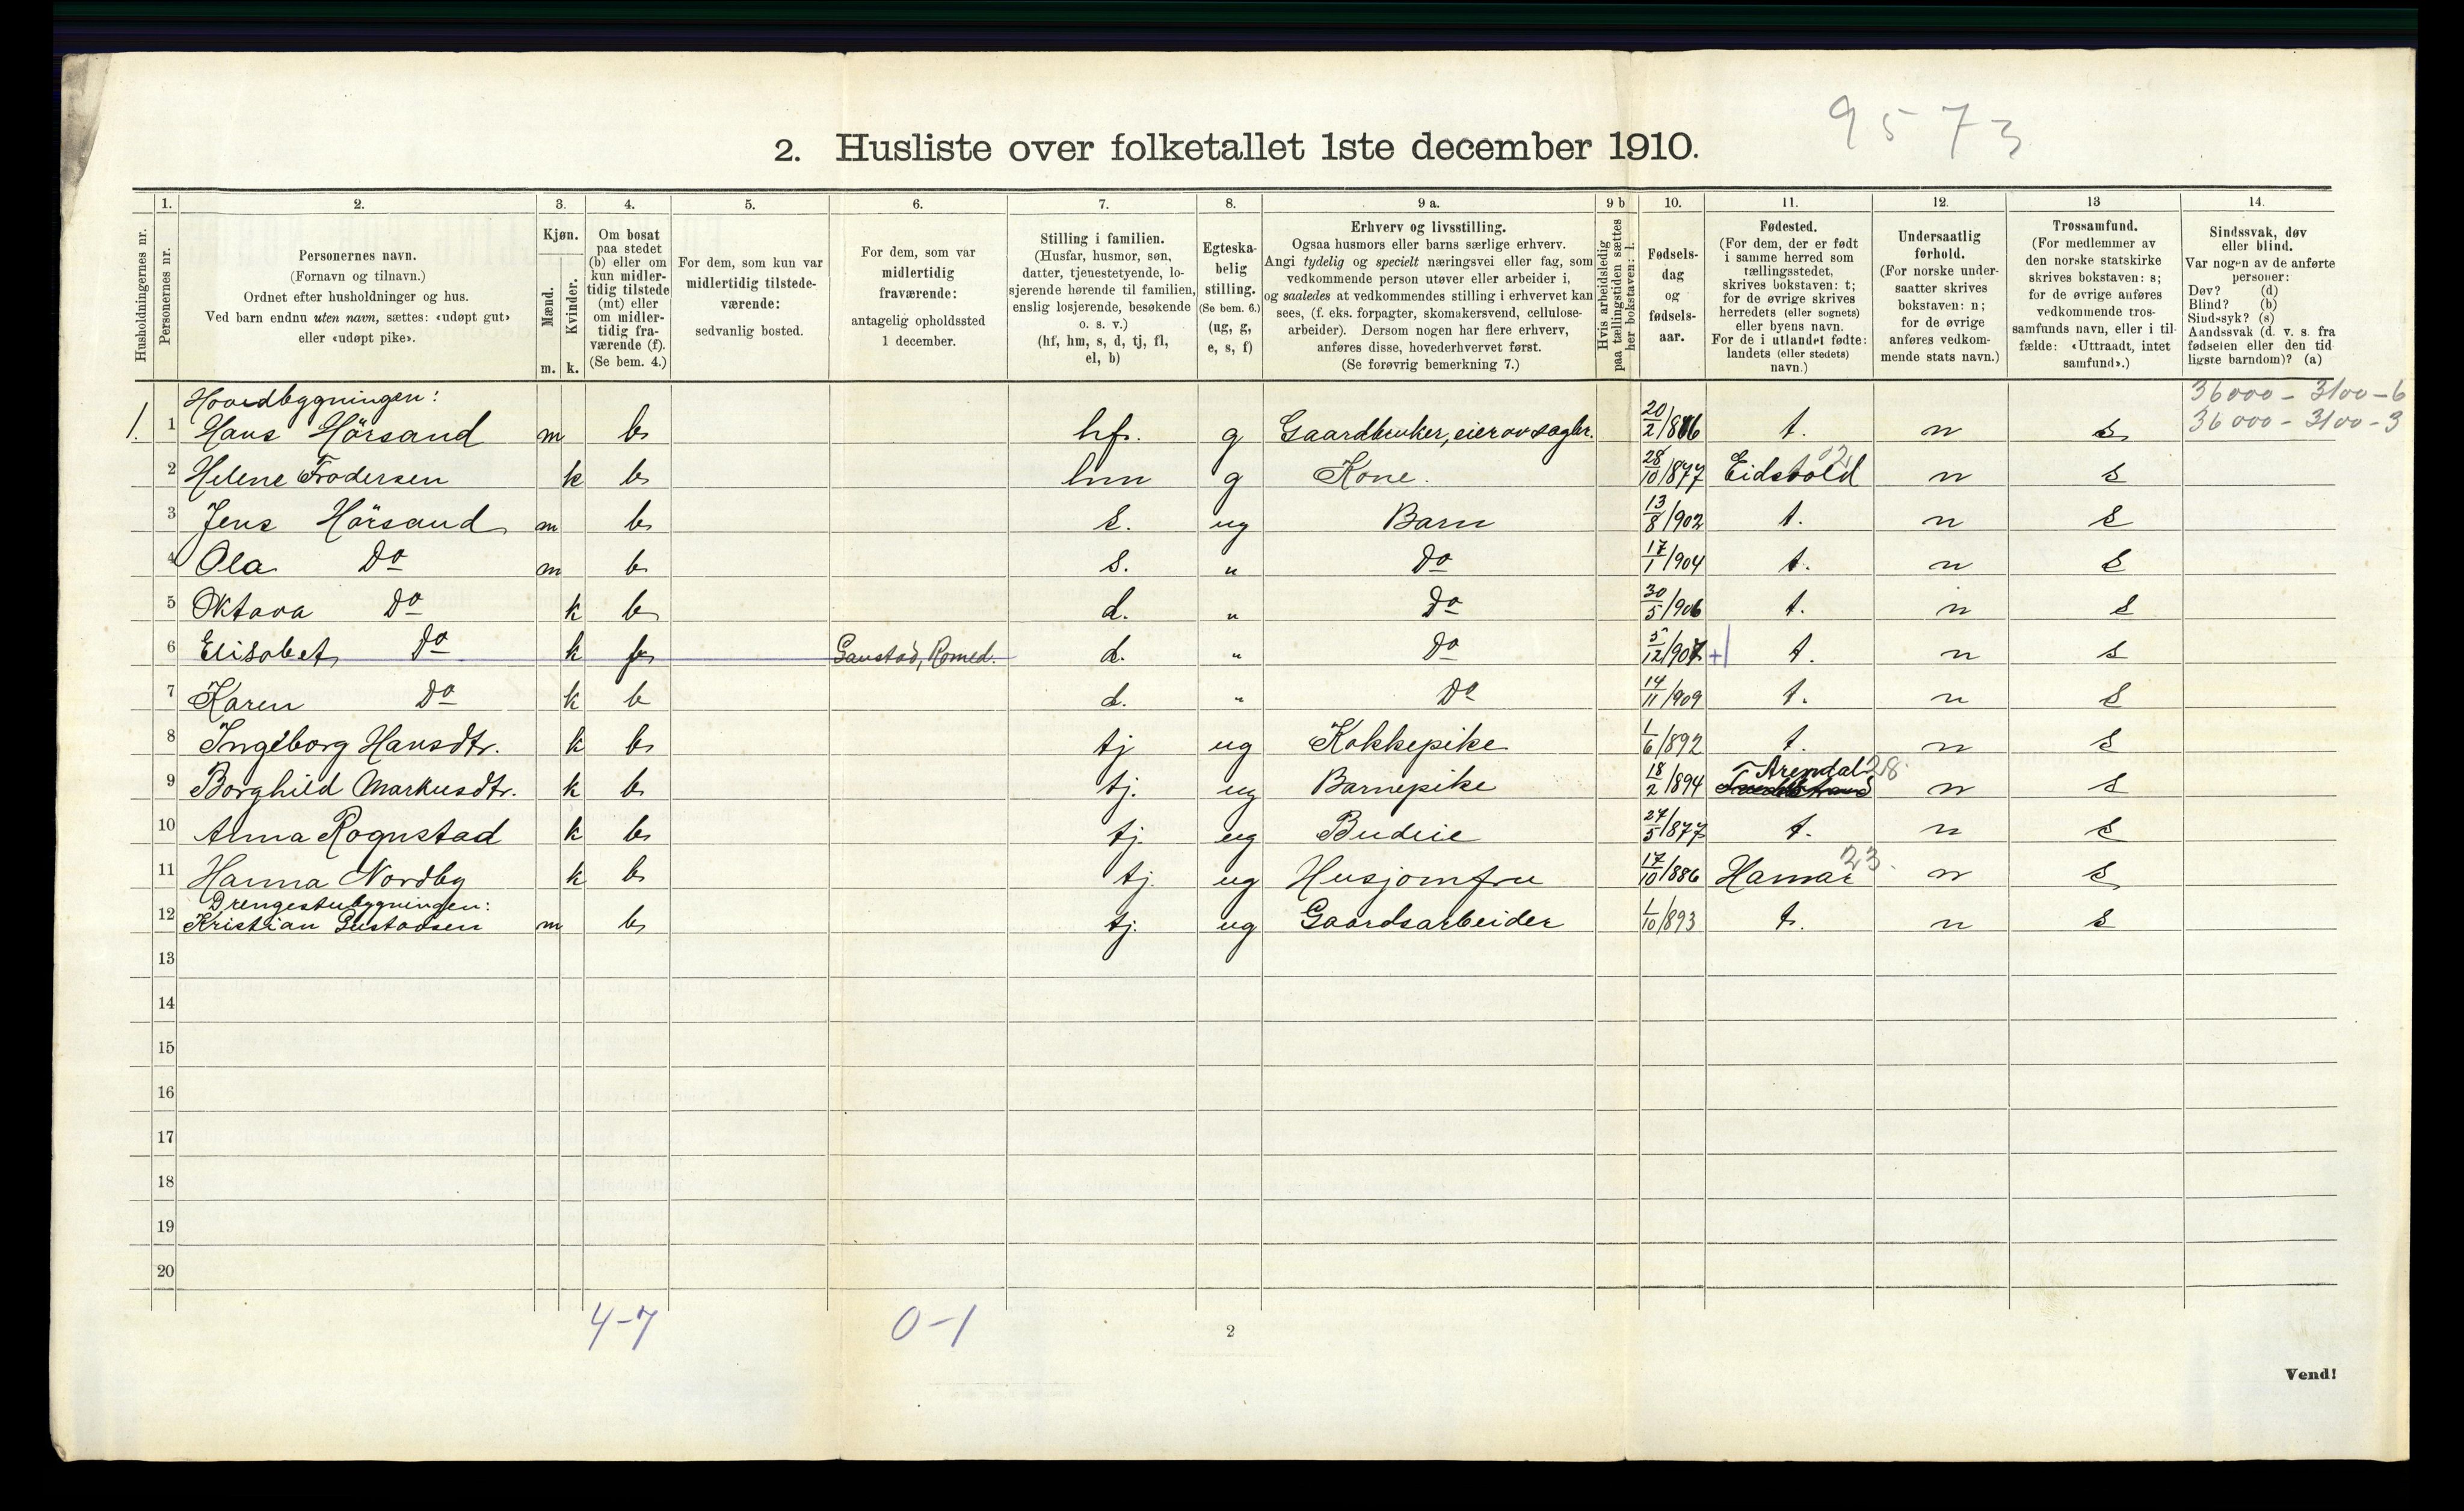 9573
2. Husliste over folketallet 1ste december 1910.
Husholdningernes nr.
1. Personernes nr.
2. Personernes navn.
(Fornavn og tilnavn.)
Ordnet efter husholdninger og hus.
Ved barn endnu uten navn, sættes: «udøpt gut»
eller «udøpt pike».
3. Kjøn.
Mænd. m.
Kvinder. k.
4. Om bosat
paa stedet
(b) eller om
kun midler-
tidig tilstede
(mt) eller
om midler-
tidig fra-
værende (f).
(Se bem. 4.)
5. For dem, som kun var
midlertidig tilstede-
værende:
sedvanlig bosted.
6. For dem, som var
midlertidig
fraværende:
antagelig opholdssted
1 december.
7. Stilling i familien.
(Husfar, husmor, søn,
datter, tjenestetyende, lo-
sjerende hørende til familien,
enslig losjerende, besøkende
o. s. v.)
(hf, hm, s, d, tj, fl,
el, b)
8. Egteska-
belig
stilling.
(Se bem. 6.)
(ug, g,
e, s, f)
9 a. Erhverv og livsstilling.
Ogsaa husmors eller barns særlige erhverv.
Angi tydelig og specielt næringsvei eller fag, som
vedkommende person utøver eller arbeider i,
og saaledes at vedkommendes stilling i erhvervet kan
sees, (f. eks. forpagter, skomakersvend, cellulose-
arbeider). Dersom nogen har flere erhverv,
anføres disse, hovederhvervet først.
(Se forøvrig bemerkning 7.)
9 b Hvis arbeidsledig
paa tællingstiden sættes
her bokstaven: l.
10. Fødsels-
dag
og
fødsels-
aar.
11. Fødested.
(For dem, der er født
i samme herred som
tællingsstedet,
skrives bokstaven: t;
for de øvrige skrives
herredets (eller sognets)
eller byens navn.
For de i utlandet fødte:
landets (eller stedets)
navn.)
12. Undersaatlig
forhold.
(For norske under-
saatter skrives
bokstaven: n;
for de øvrige
anføres vedkom-
mende stats navn.)
13 Trossamfund.
(For medlemmer av
den norske statskirke
skrives bokstaven: s;
for de øvrige anføres
vedkommende tros-
samfunds navn, eller i til-
fælde: «Uttraadt, intet
samfund».)
14. Sindssvak, døv
eller blind.
Var nogen av de anførte
personer:
Døv? (d)
Blind? (b)
Sindssyk? (s)
Aandssvak (d. v. s. fra
fødselen eller den tid
ligste barndom)? (a)
Hovedbygningen: 36000 - 3100 - 6
1. 1 Hans Hörsand m b hf. g Gaardbruker, eier av sagbr. 20/2/ t. n s 36000 - 3100 - 3
2 Helene k b hm g Kone. 28/10/877 Eidsvold n s
3 Jens Hörsand m b s. ug Barn 13/8/902 t. n s
4 Ola Do m b s. " Do 17/1/904 t. n s
5 Oktava Do k b d. " Do 30/5/906 t. n s
6 Elisabet Do k f Gaustad, Romed. d. " Do 5/12/907 +1 t. n s
7 Karen Do k b d. " Do 14/11/909 t. n s
8 Ingeborg Hansdtr. k b tj ug Kokkepike 1/6/892 t. n s
9 Borghild Markusdtr. k b tj. ug Barnepike 18/2/894 Arendal 28. n s
10 Anna Rognstad k b tj. ug Budeie 27/5/877 t. n s
11 Hanna Nordby k b tj. ug Husjomfru 17/10/886 Hamar 23. n s
Drengestubygningen:
12 Kristian Gustadsen m b tj. ug Gaardsarbeider 1/10/893 t. n s
13
14
15
16
17
18
19
20
4-7 0-1
2
Vend!